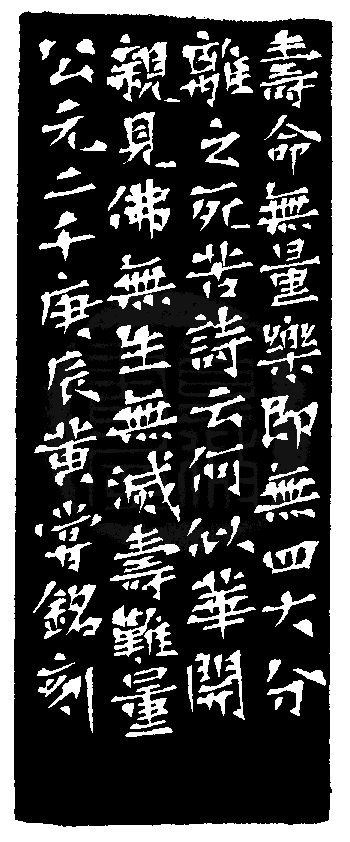 壽命無量樂即無四大分
離之死苦詩云何似華開
親見佛無生無滅壽難量
公元二千庚辰黄嘗銘刻